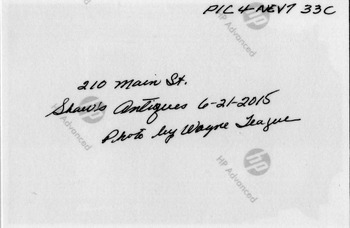 PIC 4-NEV7 33C
210 Main St.
Shaw's Antiques 6-21-2015
Photo by Wayne Teague
hp
HP Advanced
hp
HP Advanced
hp
HP Advanced
hp
HP Advanced